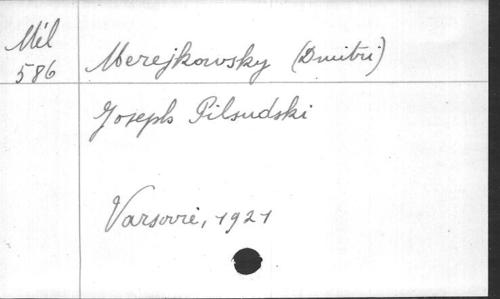 Mél
586
Merejkowsky (Dmitri)
Joseph Pilsudski
Varsovie, 1921